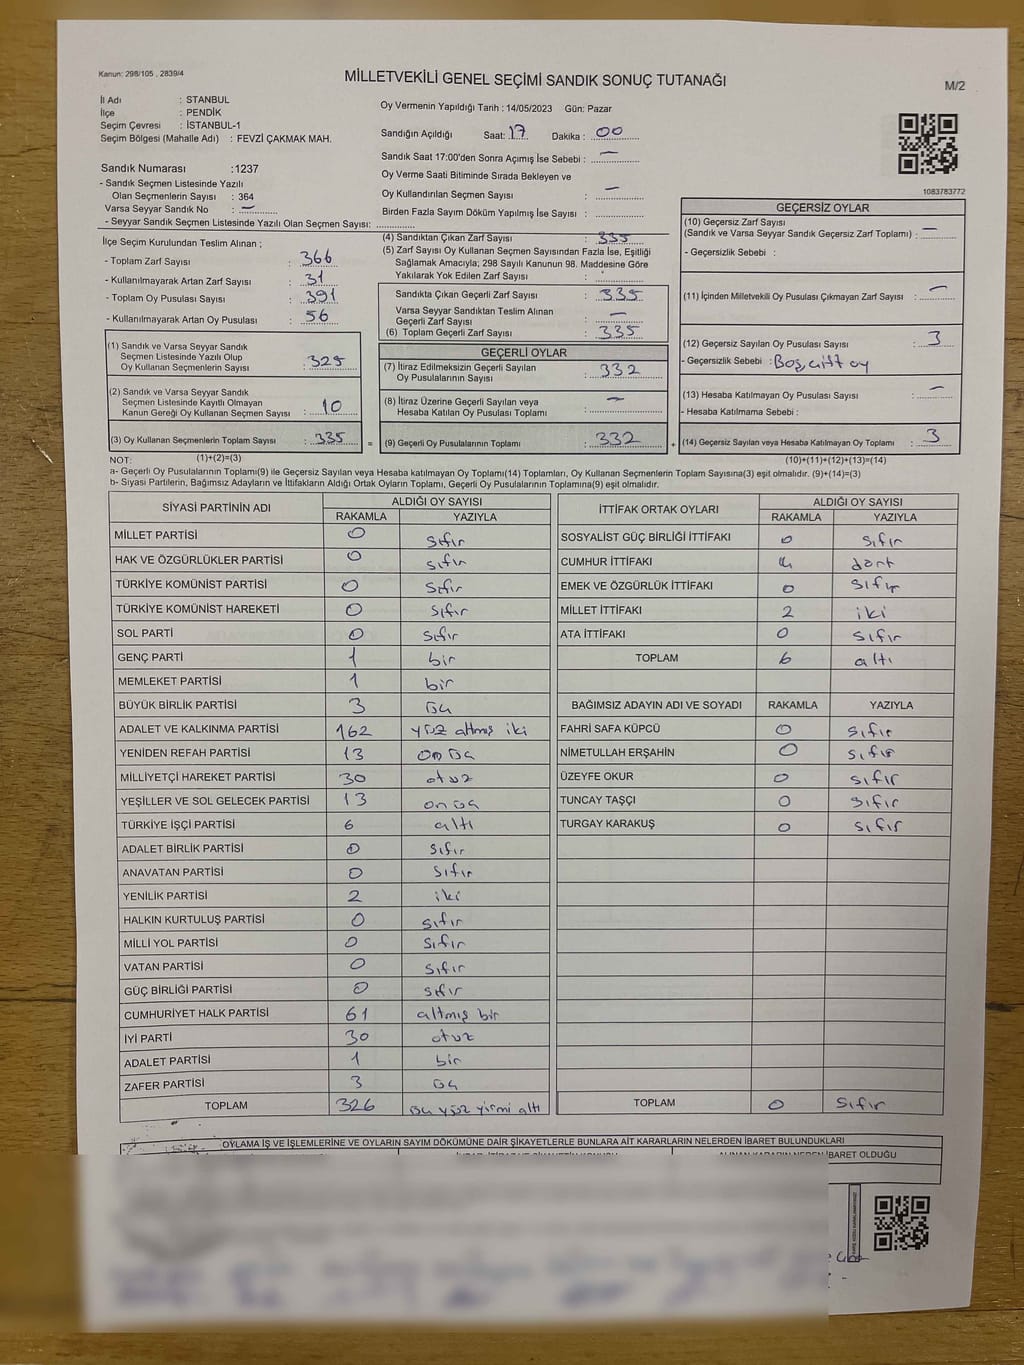 Kanun: 298/105 , 2839/4
MİLLETVEKİLİ GENEL SEÇİMİ SANDIK SONUÇ TUTANAĞI
M/2
İl Adı : STANBUL
İlçe : PENDİK
Seçim Çevresi : İSTANBUL-1
Seçim Bölgesi (Mahalle Adı) : FEVZİ ÇAKMAK MAH.
Oy Vermenin Yapıldığı Tarih : 14/05/2023 Gün: Pazar
Sandığın Açıldığı Saat: 17 Dakika : 00
Sandık Saat 17:00'den Sonra Açımış İse Sebebi : —
Oy Verme Saati Bitiminde Sırada Bekleyen ve
Oy Kullandırılan Seçmen Sayısı : —
Birden Fazla Sayım Döküm Yapılmış İse Sayısı :
1083783772
Sandık Numarası :1237
- Sandık Seçmen Listesinde Yazılı
Olan Seçmenlerin Sayısı : 364
Varsa Seyyar Sandık No : —
- Seyyar Sandık Seçmen Listesinde Yazılı Olan Seçmen Sayısı:
İlçe Seçim Kurulundan Teslim Alınan ;
- Toplam Zarf Sayısı : 366
- Kullanılmayarak Artan Zarf Sayısı : 31
- Toplam Oy Pusulası Sayısı : 391
- Kullanılmayarak Artan Oy Pusulası : 56
(1) Sandık ve Varsa Seyyar Sandık
Seçmen Listesinde Yazılı Olup
Oy Kullanan Seçmenlerin Sayısı : 325
(2) Sandık ve Varsa Seyyar Sandık
Seçmen Listesinde Kayıtlı Olmayan
Kanun Gereği Oy Kullanan Seçmen Sayısı : 10
(3) Oy Kullanan Seçmenlerin Toplam Sayısı : 335
(4) Sandıktan Çıkan Zarf Sayısı : 335
(5) Zarf Sayısı Oy Kullanan Seçmen Sayısından Fazla İse, Eşitliği
Sağlamak Amacıyla; 298 Sayılı Kanunun 98. Maddesine Göre
Yakılarak Yok Edilen Zarf Sayısı :
Sandıkta Çıkan Geçerli Zarf Sayısı : 335
Varsa Seyyar Sandıktan Teslim Alınan
Geçerli Zarf Sayısı : —
(6) Toplam Geçerli Zarf Sayısı : 335
GEÇERLİ OYLAR
(7) İtiraz Edilmeksizin Geçerli Sayılan
Oy Pusulalarının Sayısı : 332
(8) İtiraz Üzerine Geçerli Sayılan veya
Hesaba Katılan Oy Pusulası Toplamı : —
= (9) Geçerli Oy Pusulalarının Toplamı : 332
GEÇERSİZ OYLAR
(10) Geçersiz Zarf Sayısı
(Sandık ve Varsa Seyyar Sandık Geçersiz Zarf Toplamı) : —
- Geçersizlik Sebebi :
(11) İçinden Milletvekili Oy Pusulası Çıkmayan Zarf Sayısı : —
(12) Geçersiz Sayılan Oy Pusulası Sayısı : 3
- Geçersizlik Sebebi : Boş, çift oy
(13) Hesaba Katılmayan Oy Pusulası Sayısı : —
- Hesaba Katılmama Sebebi :
+ (14) Geçersiz Sayılan veya Hesaba Katılmayan Oy Toplamı : 3
NOT: (1)+(2)=(3) (10)+(11)+(12)+(13)=(14)
a- Geçerli Oy Pusulalarının Toplamı(9) ile Geçersiz Sayılan veya Hesaba katılmayan Oy Toplamı(14) Toplamları, Oy Kullanan Seçmenlerin Toplam Sayısına(3) eşit olmalıdır. (9)+(14)=(3)
b- Siyasi Partilerin, Bağımsız Adayların ve İttifakların Aldığı Ortak Oyların Toplamı, Geçerli Oy Pusulalarının Toplamına(9) eşit olmalıdır.
SİYASİ PARTİNİN ADI ALDIĞI OY SAYISI
RAKAMLA YAZIYLA
MİLLET PARTİSİ 0 sıfır
HAK VE ÖZGÜRLÜKLER PARTİSİ 0 sıfır
TÜRKİYE KOMÜNİST PARTİSİ 0 sıfır
TÜRKİYE KOMÜNİST HAREKETİ 0 sıfır
SOL PARTİ 0 sıfır
GENÇ PARTİ 1 bir
MEMLEKET PARTİSİ 1 bir
BÜYÜK BİRLİK PARTİSİ 3 üç
ADALET VE KALKINMA PARTİSİ 162 yüz altmış iki
YENİDEN REFAH PARTİSİ 13 on üç
MİLLİYETÇİ HAREKET PARTİSİ 30 otuz
YEŞİLLER VE SOL GELECEK PARTİSİ 13 on üç
TÜRKİYE İŞÇİ PARTİSİ 6 altı
ADALET BİRLİK PARTİSİ 0 sıfır
ANAVATAN PARTİSİ 0 sıfır
YENİLİK PARTİSİ 2 iki
HALKIN KURTULUŞ PARTİSİ 0 sıfır
MİLLİ YOL PARTİSİ 0 sıfır
VATAN PARTİSİ 0 sıfır
GÜÇ BİRLİĞİ PARTİSİ 0 sıfır
CUMHURİYET HALK PARTİSİ 61 altmış bir
İYİ PARTİ 30 otuz
ADALET PARTİSİ 1 bir
ZAFER PARTİSİ 3 üç
TOPLAM 326 üç yüz yirmi altı
İTTİFAK ORTAK OYLARI ALDIĞI OY SAYISI
RAKAMLA YAZIYLA
SOSYALİST GÜÇ BİRLİĞİ İTTİFAKI 0 sıfır
CUMHUR İTTİFAKI 4 dört
EMEK VE ÖZGÜRLÜK İTTİFAKI 0 sıfır
MİLLET İTTİFAKI 2 iki
ATA İTTİFAKI 0 sıfır
TOPLAM 6 altı
BAĞIMSIZ ADAYIN ADI VE SOYADI RAKAMLA YAZIYLA
FAHRİ SAFA KÜPCÜ 0 sıfır
NİMETULLAH ERŞAHİN 0 sıfır
ÜZEYFE OKUR 0 sıfır
TUNCAY TAŞÇI 0 sıfır
TURGAY KARAKUŞ 0 sıfır
TOPLAM 0 sıfır
OYLAMA İŞ VE İŞLEMLERİNE VE OYLARIN SAYIM DÖKÜMÜNE DAİR ŞİKAYETLERLE BUNLARA AİT KARARLARIN NELERDEN İBARET BULUNDUKLARI
ALINAN KARARIN NEDEN İBARET OLDUĞU